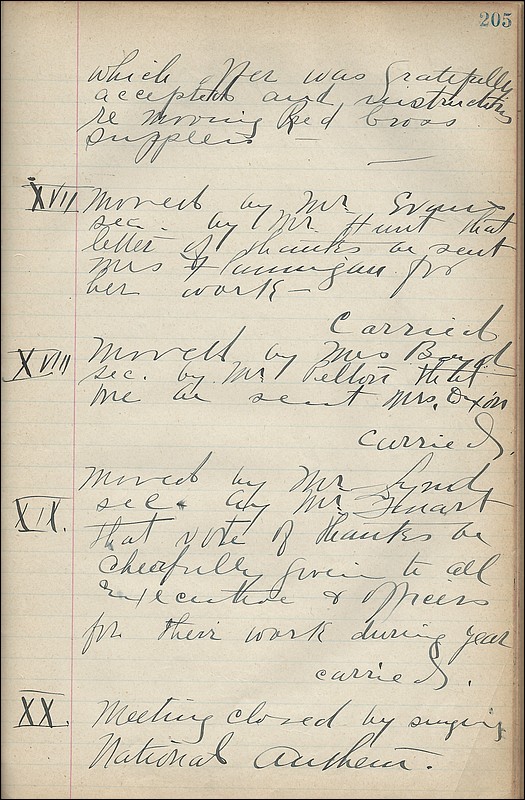 205
which offer was gratefully
accepted and instructions
re moving Red Cross
supplies —
XVII Moved by Mr. Evans
sec. by Mr. Hunt that
letter of thanks be sent
Mrs Flannigan for
her work —
Carried
XVIII Moved by Mrs Boyd
sec. by Mr. Pelton that
one be sent Mrs. Dixon
carried.
Moved by Mr. Lynd
XIX. sec. by Mr.
that vote of thanks be
cheerfully given to all
executive & officers
for their work during year
carried.
XX. Meeting closed by singing
National Anthem.